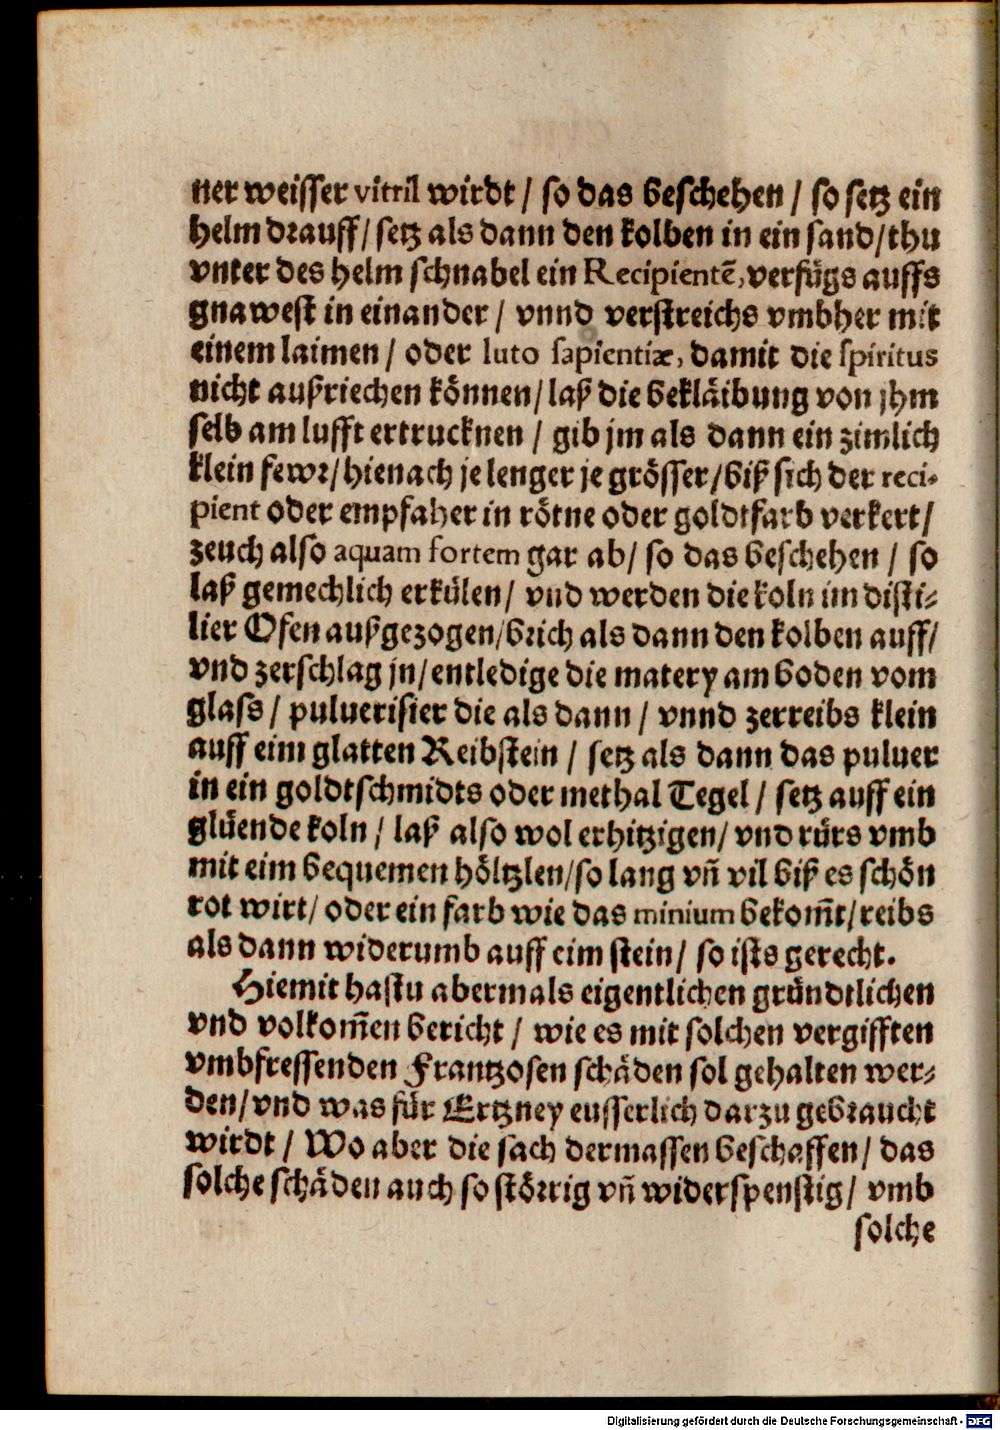 ner weisser vitril wirdt / so das beschehen / so setz ein
helm drauff / setz als dann den kolben in ein sand / thu
vnter des helm schnabel ein Recipientē, verfügs auffs
gnawest in einander / vnnd verstreichs vmbher mit
einem laimen / oder luto sapientiæ, damit die spiritus
nicht außriechen können / laß die bekläibung von jhm
selb am lufft ertrucknen / gib jm als dann ein zimlich
klein fewr / hienach je lenger je grösser / biß sich der reci-
pient oder empfaher in rötne oder goldtfarb verkert /
zeuch also aquam fortem gar ab / so das beschehen / so
laß gemechlich erkülen / vnd werden die koln im disti-
lier Ofen außgezogen / brich als dann den kolben auff /
vnd zerschlag jn / entledige die matery am boden vom
glass / puluerisier die als dann / vnnd zerreibs klein
auff eim glatten Reibstein / setz als dann das puluer
in ein goldtschmidts oder methal Tegel / setz auff ein
glüende koln / laß also wol erhitzigen / vnd rürs vmb
mit eim bequemen höltzlen / so lang vñ vil biß es schön
rot wirt / oder ein farb wie das minium bekom̄t / reibs
als dann widerumb auff eim stein / so ists gerecht.
Hiemit hastu abermals eigentlichen gründtlichen
vnd volkom̄en bericht / wie es mit solchen vergifften
vmbfressenden Frantzosen schäden sol gehalten wer-
den / vnd was für Ertzney eusserlich darzu gebraucht
wirdt / Wo aber die sach dermassen beschaffen / das
solche schäden auch so störrig vñ widerspenstig / vmb
solche
Digitalisierung gefördert durch die Deutsche Forschungsgemeinschaft - DFG